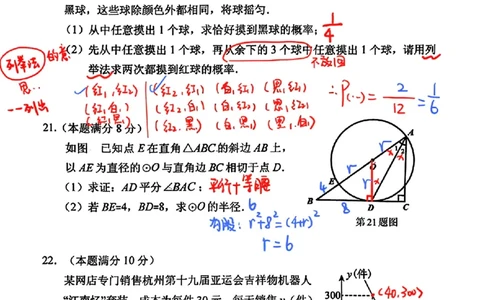 黑球，这些球除颜色外都相同，将球摇匀.
（1）从中任意摸出1个球，求恰好摸到黑球的概率；1/4
（2）先从中任意摸出1个球，再从余下的3个球中任意摸出1个球，请用列
不放回
举法求两次都摸到红球的概率.
列举法的意
思..
一一列出
(红₁,红₂) (红₂,红₁) (白,红₁) (黑,红₁)
(红₁,白) (红₂,白) (白,红₂) (黑,红₂)
(红₁,黑) (红₂.黑) (白,黑) (黑,白)
∴P(...)=2/12=1/6
21.(本题满分8分)
如图 已知点E在直角△ABC的斜边AB上，
以AE为直径的⊙O与直角边BC相切于点D.
（1）求证：AD平分∠BAC；平行+等腰
（2）若BE=4，BD=8，求⊙O的半径. 6
勾股：r²+8²=(4+r)²
r=6
A
1
2
r
x
x
O
r
r
x
E
4
B
8
D
C
第21题图
22.（本题满分10分）
某网店专门销售杭州第十九届亚运会吉祥物机器人
y(件)
300
(40,300)